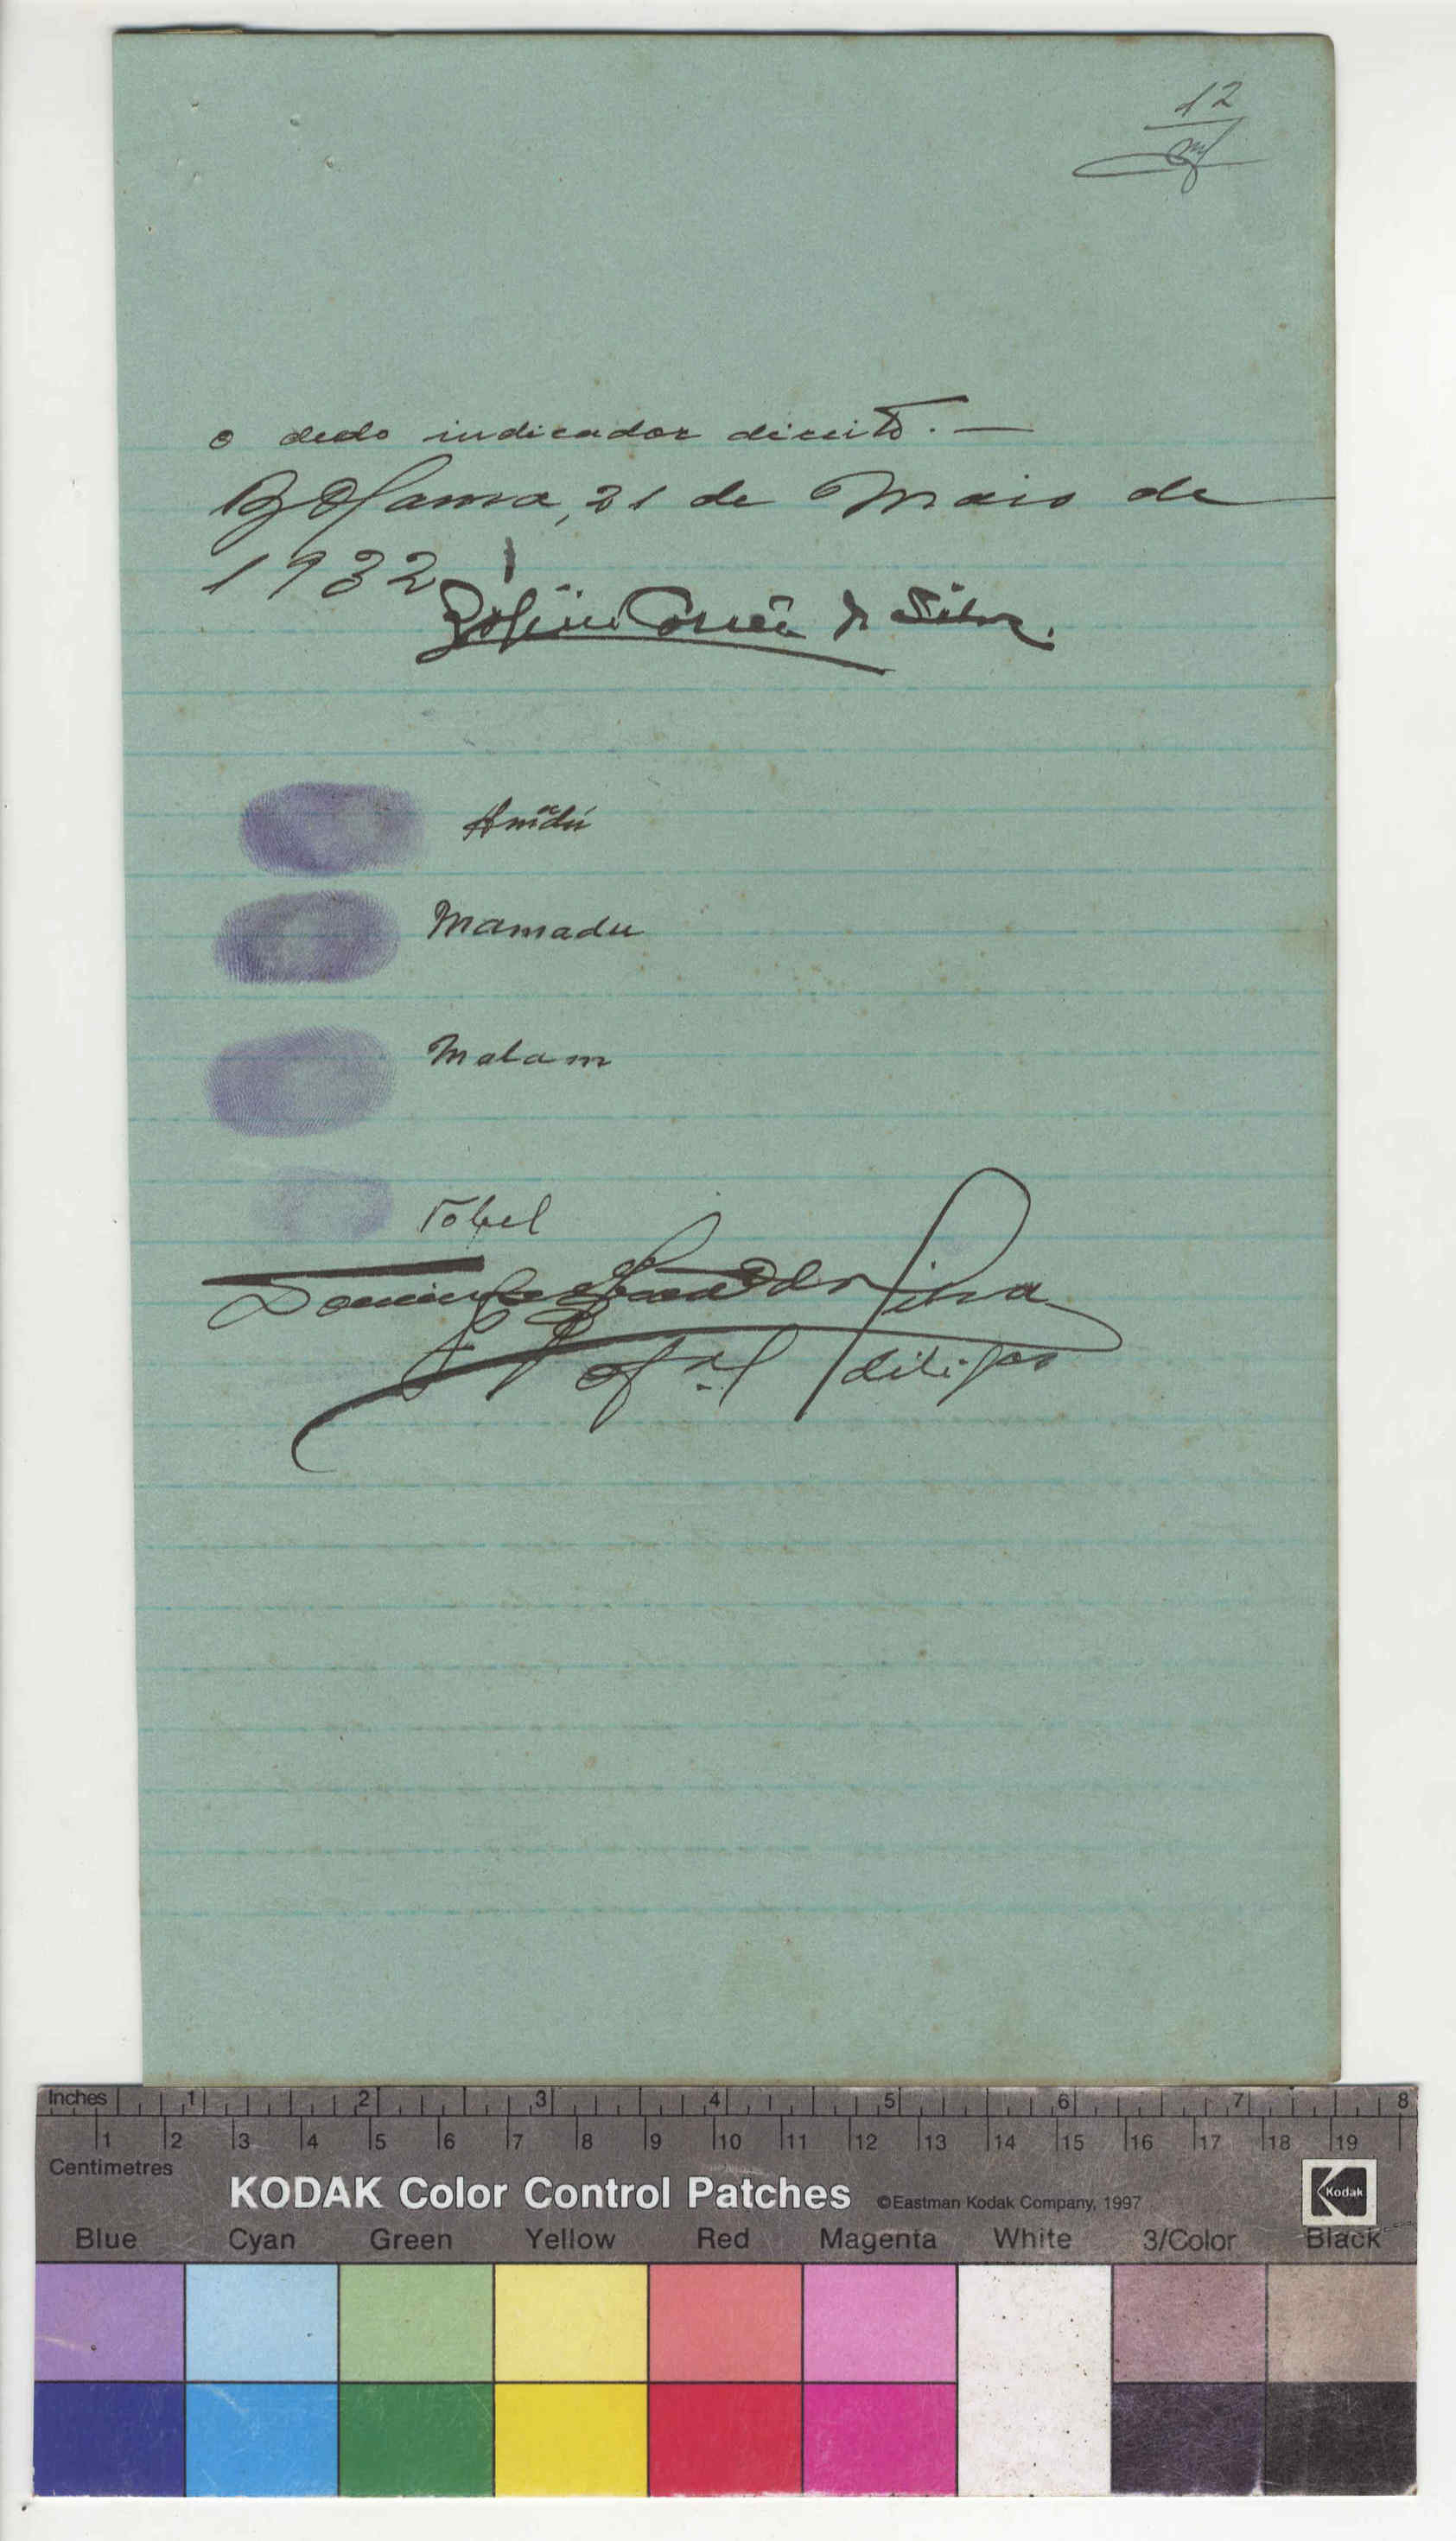 12
o dedo indicador direito. —
Bolama, 21 de Maio de
1932
Corrêa da Silva.
Amadú
Mamadu
Malam
Tobel
Domingos da Silva
Of.al diligas
Inches 1 2 3 4 5 6 7 8
1 2 3 4 5 6 7 8 9 10 11 12 13 14 15 16 17 18 19
Centimetres
KODAK Color Control Patches ©Eastman Kodak Company, 1997 Kodak
Blue Cyan Green Yellow Red Magenta White 3/Color Black